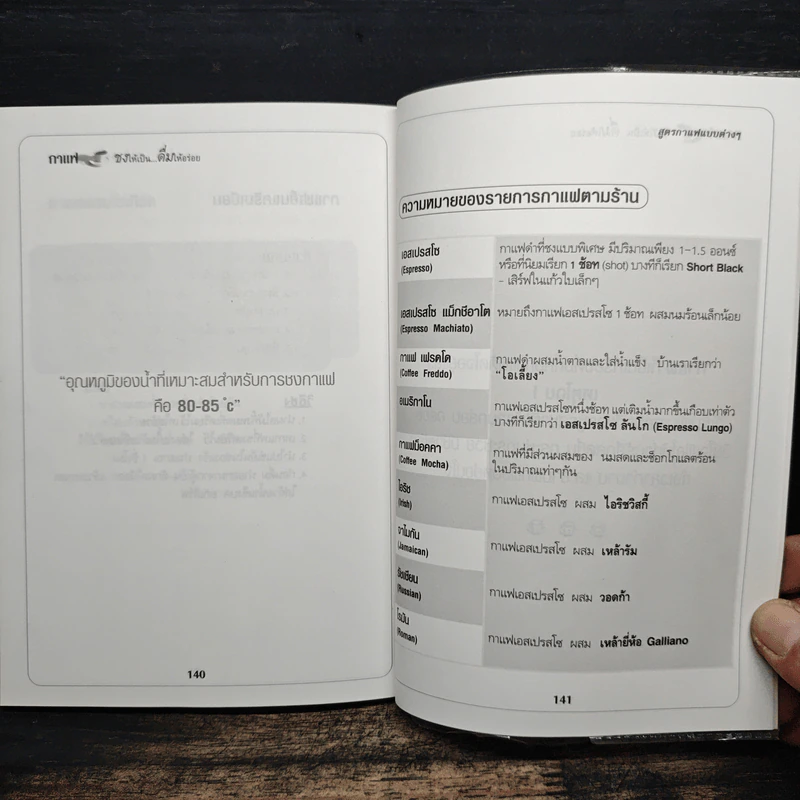 กาแฟ ชงให้เป็น...ดื่มให้อร่อย
"อุณหภูมิของน้ำที่เหมาะสมสำหรับการชงกาแฟ
คือ 80-85 °c"
140
สูตรกาแฟแบบต่างๆ
ความหมายของรายการกาแฟตามร้าน
เอสเปรสโซ
(Espresso)
กาแฟดำที่ชงแบบพิเศษ มีปริมาณเพียง 1-1.5 ออนซ์
หรือที่นิยมเรียก 1 ช้อท (shot) บางทีก็เรียก Short Black
- เสิร์ฟในแก้วใบเล็กๆ
เอสเปรสโซ แม็กชีอาโต
(Espresso Machiato)
หมายถึงกาแฟเอสเปรสโซ 1 ช้อท ผสมนมร้อนเล็กน้อย
กาแฟ เฟรดโด
(Coffee Freddo)
กาแฟดำผสมน้ำตาลและใส่น้ำแข็ง บ้านเราเรียกว่า
"โอเลี้ยง"
อเมริกาโน
กาแฟเอสเปรสโซหนึ่งช้อท แต่เติมน้ำมากขึ้นเกือบเท่าตัว
บางทีก็เรียก เอสเปรสโซ ลันโก (Espresso Lungo)
กาแฟม็อคคา
(Coffee Mocha)
กาแฟที่มีส่วนผสมของ นมสดและช็อกโกแลตร้อน
ในปริมาณเท่าๆกัน
ไอริช
(Irish)
กาแฟเอสเปรสโซ ผสม ไอริชวิสกี้
จาไมกัน
(Jamaican)
กาแฟเอสเปรสโซ ผสม เหล้ารัม
รัซเซียน
(Russian)
กาแฟเอสเปรสโซ ผสม วอดก้า
โรมัน
(Roman)
กาแฟเอสเปรสโซ ผสม เหล้ายี่ห้อ Galliano
141